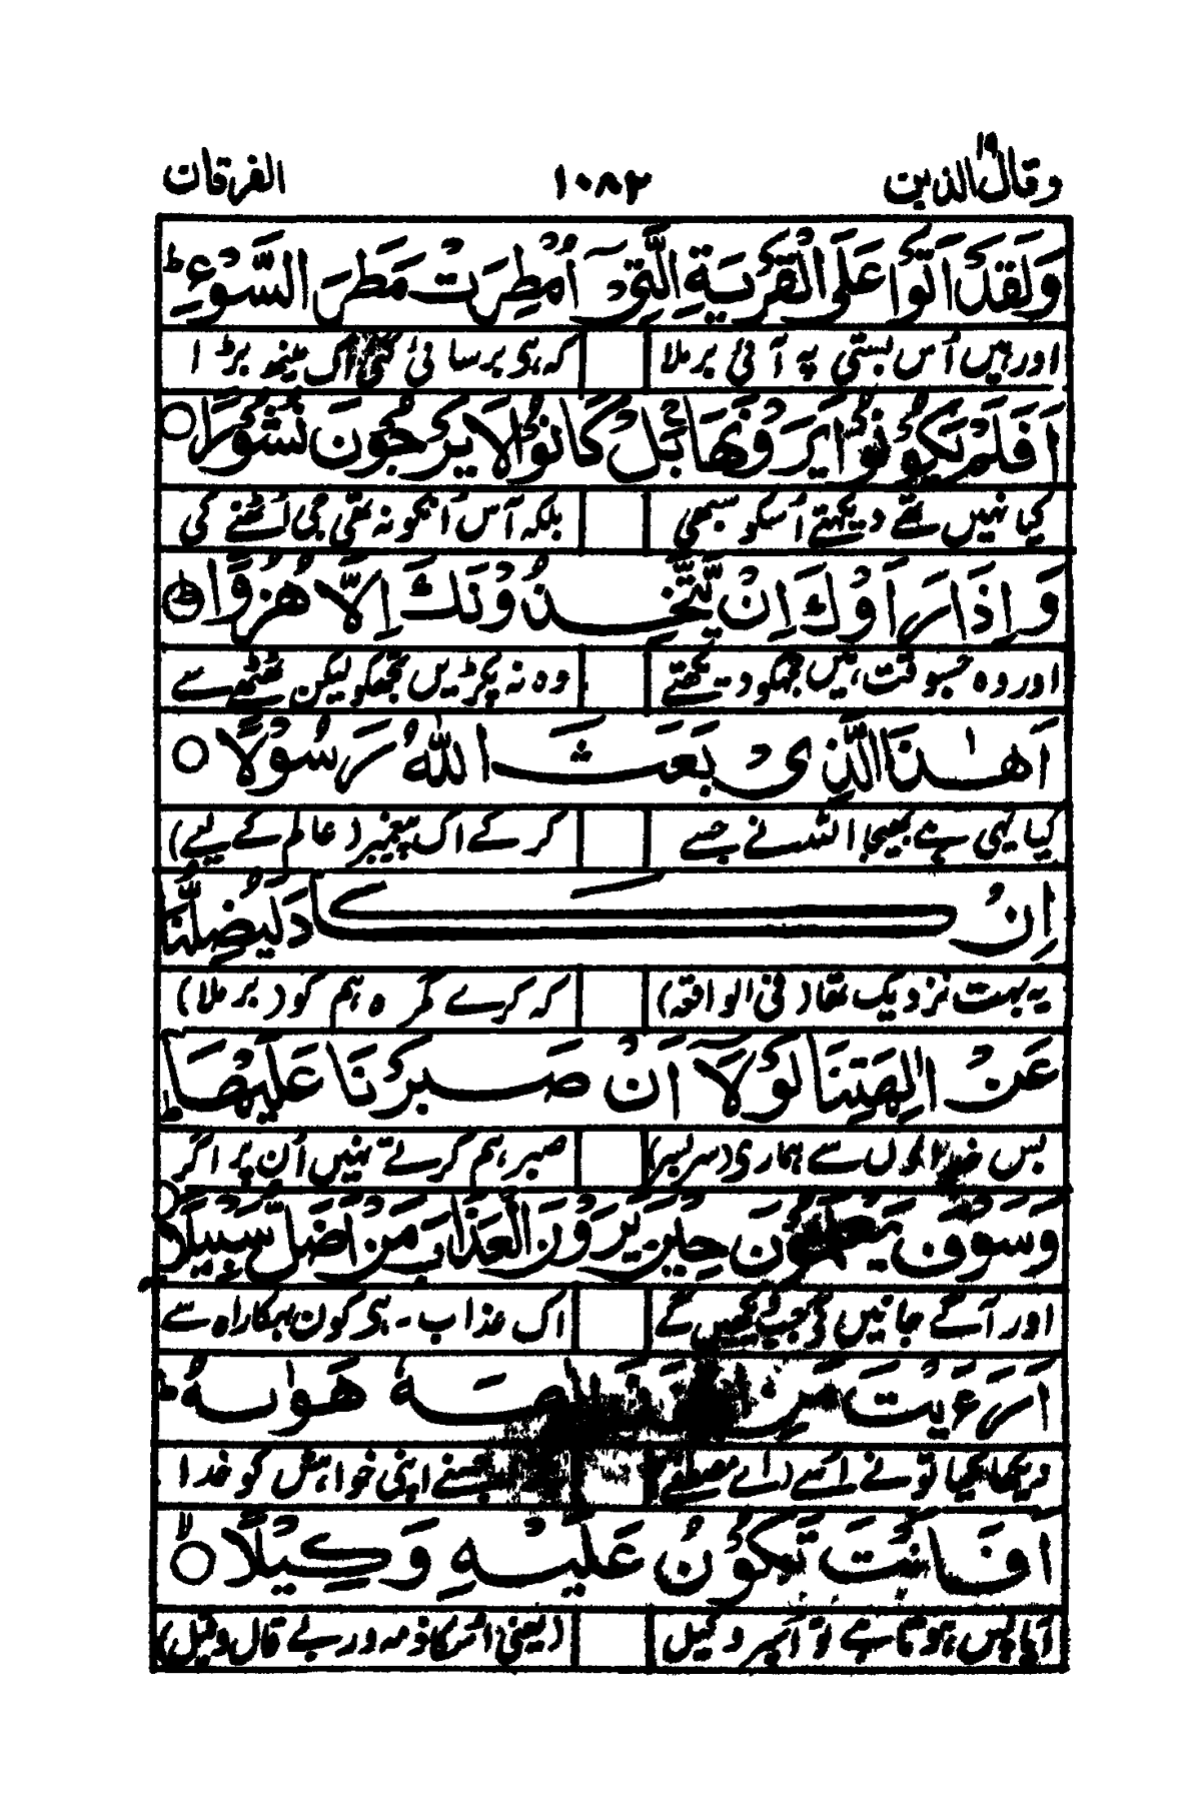 وقال الذین ۱۹ ۱۰۸۲ الفرقان
وَلَقَدْ اَتَوْا عَلَی الْقَرْیَةِ الَّتِیْۤ اُمْطِرَتْ مَطَرَ السَّوْءِ ؕ
اور ہیں اُس بستی پہ آئی برملا کہ ہوی برسائی گئی اک مینھ بڑا
اَفَلَمْ یَکُوْنُوْا یَرَوْنَهَا ۚ بَلْ کَانُوْا لَا یَرْجُوْنَ نُشُوْرًا ○
کیا نہیں تھے دیکھتے اُسکو سبھی بلکہ آس اُنکو نہ تھی جی اُٹھنے کی
وَاِذَا رَاَوْكَ اِنْ یَّتَّخِذُوْنَكَ اِلَّا هُزُوًا ؕ
اور وہ جسوقت ہیں تجھکو دیکھتے وہ نہ پکڑیں تجھکو لیکن ٹھٹھے سے
اَهٰذَا الَّذِیْ بَعَثَ اللّٰهُ رَسُوْلًا ○
کیا یہی ہے بھیجا اللہ نے جسے کر کے اک پیغمبر (عالم کے لیے)
اِنْ كَادَ لَیُضِلُّنَا
یہ بہت نزدیک تھا (فی الواقعہ) کہ کرے گمرہ ہم کو (برملا)
عَنْ اٰلِهَتِنَا لَوْلَاۤ اَنْ صَبَرْنَا عَلَیْهَا ؕ
بس سے ہماری (سربسر) صبر ہم کرتے نہیں اُن پر اگر
وَسَوْفَ یَعْلَمُوْنَ حِیْنَ یَرَوْنَ الْعَذَابَ مَنْ اَضَلُّ سَبِیْلًا ○
اور آگے جانیں گے جب دیکھیں گے اک عذاب - ہی کون بہکا راہ سے
اَرَءَیْتَ مَنِ اتَّخَذَ اِلٰهَهٗ هَوٰىهُ ؕ
دیکھا کیا تو نے اُسے (اے مصطفےٰ) جسنے اپنی خواہش کو خدا
اَفَاَنْتَ تَكُوْنُ عَلَیْهِ وَكِیْلًا ○
آیا پس ہوتا ہے تو اُسپر وکیل (یعنی اُسکا ذمہ ور بے قال وقیل)